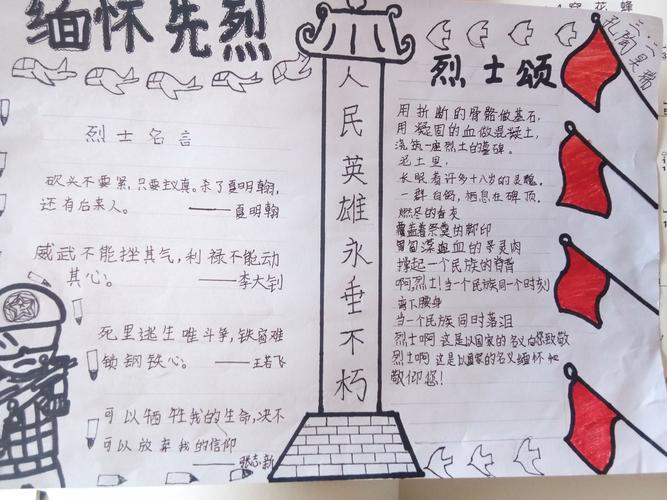 缅怀先烈
烈士名言
砍头不要紧,只要主义真。杀了夏明翰,
还有后来人。 ——夏明翰
威武不能挫其气,利禄不能动
其心。 ——李大钊
死里逃生唯斗争,铁窗难
锁钢铁心。 ——王若飞
可以牺牲我的生命,决不
可以放弃我的信仰
——张志新
人民英雄永垂不朽
烈士颂
用折断的骨骼做基石,
用凝固的血做混凝土,
浇筑一座烈士的墓碑。
泥土里,
长眠着许多十八岁的灵魂。
一群白鸽,栖息在碑顶。
燃尽的香灰
覆盖着祭奠的脚印
撑起一个民族的脊背
啊,烈士!当一个民族同一个时刻
弯下腰身
当一个民族同时落泪
烈士啊 这是以国家的名义向您致敬
烈士啊 这是以国家的名义缅怀
敬仰您!
三.二